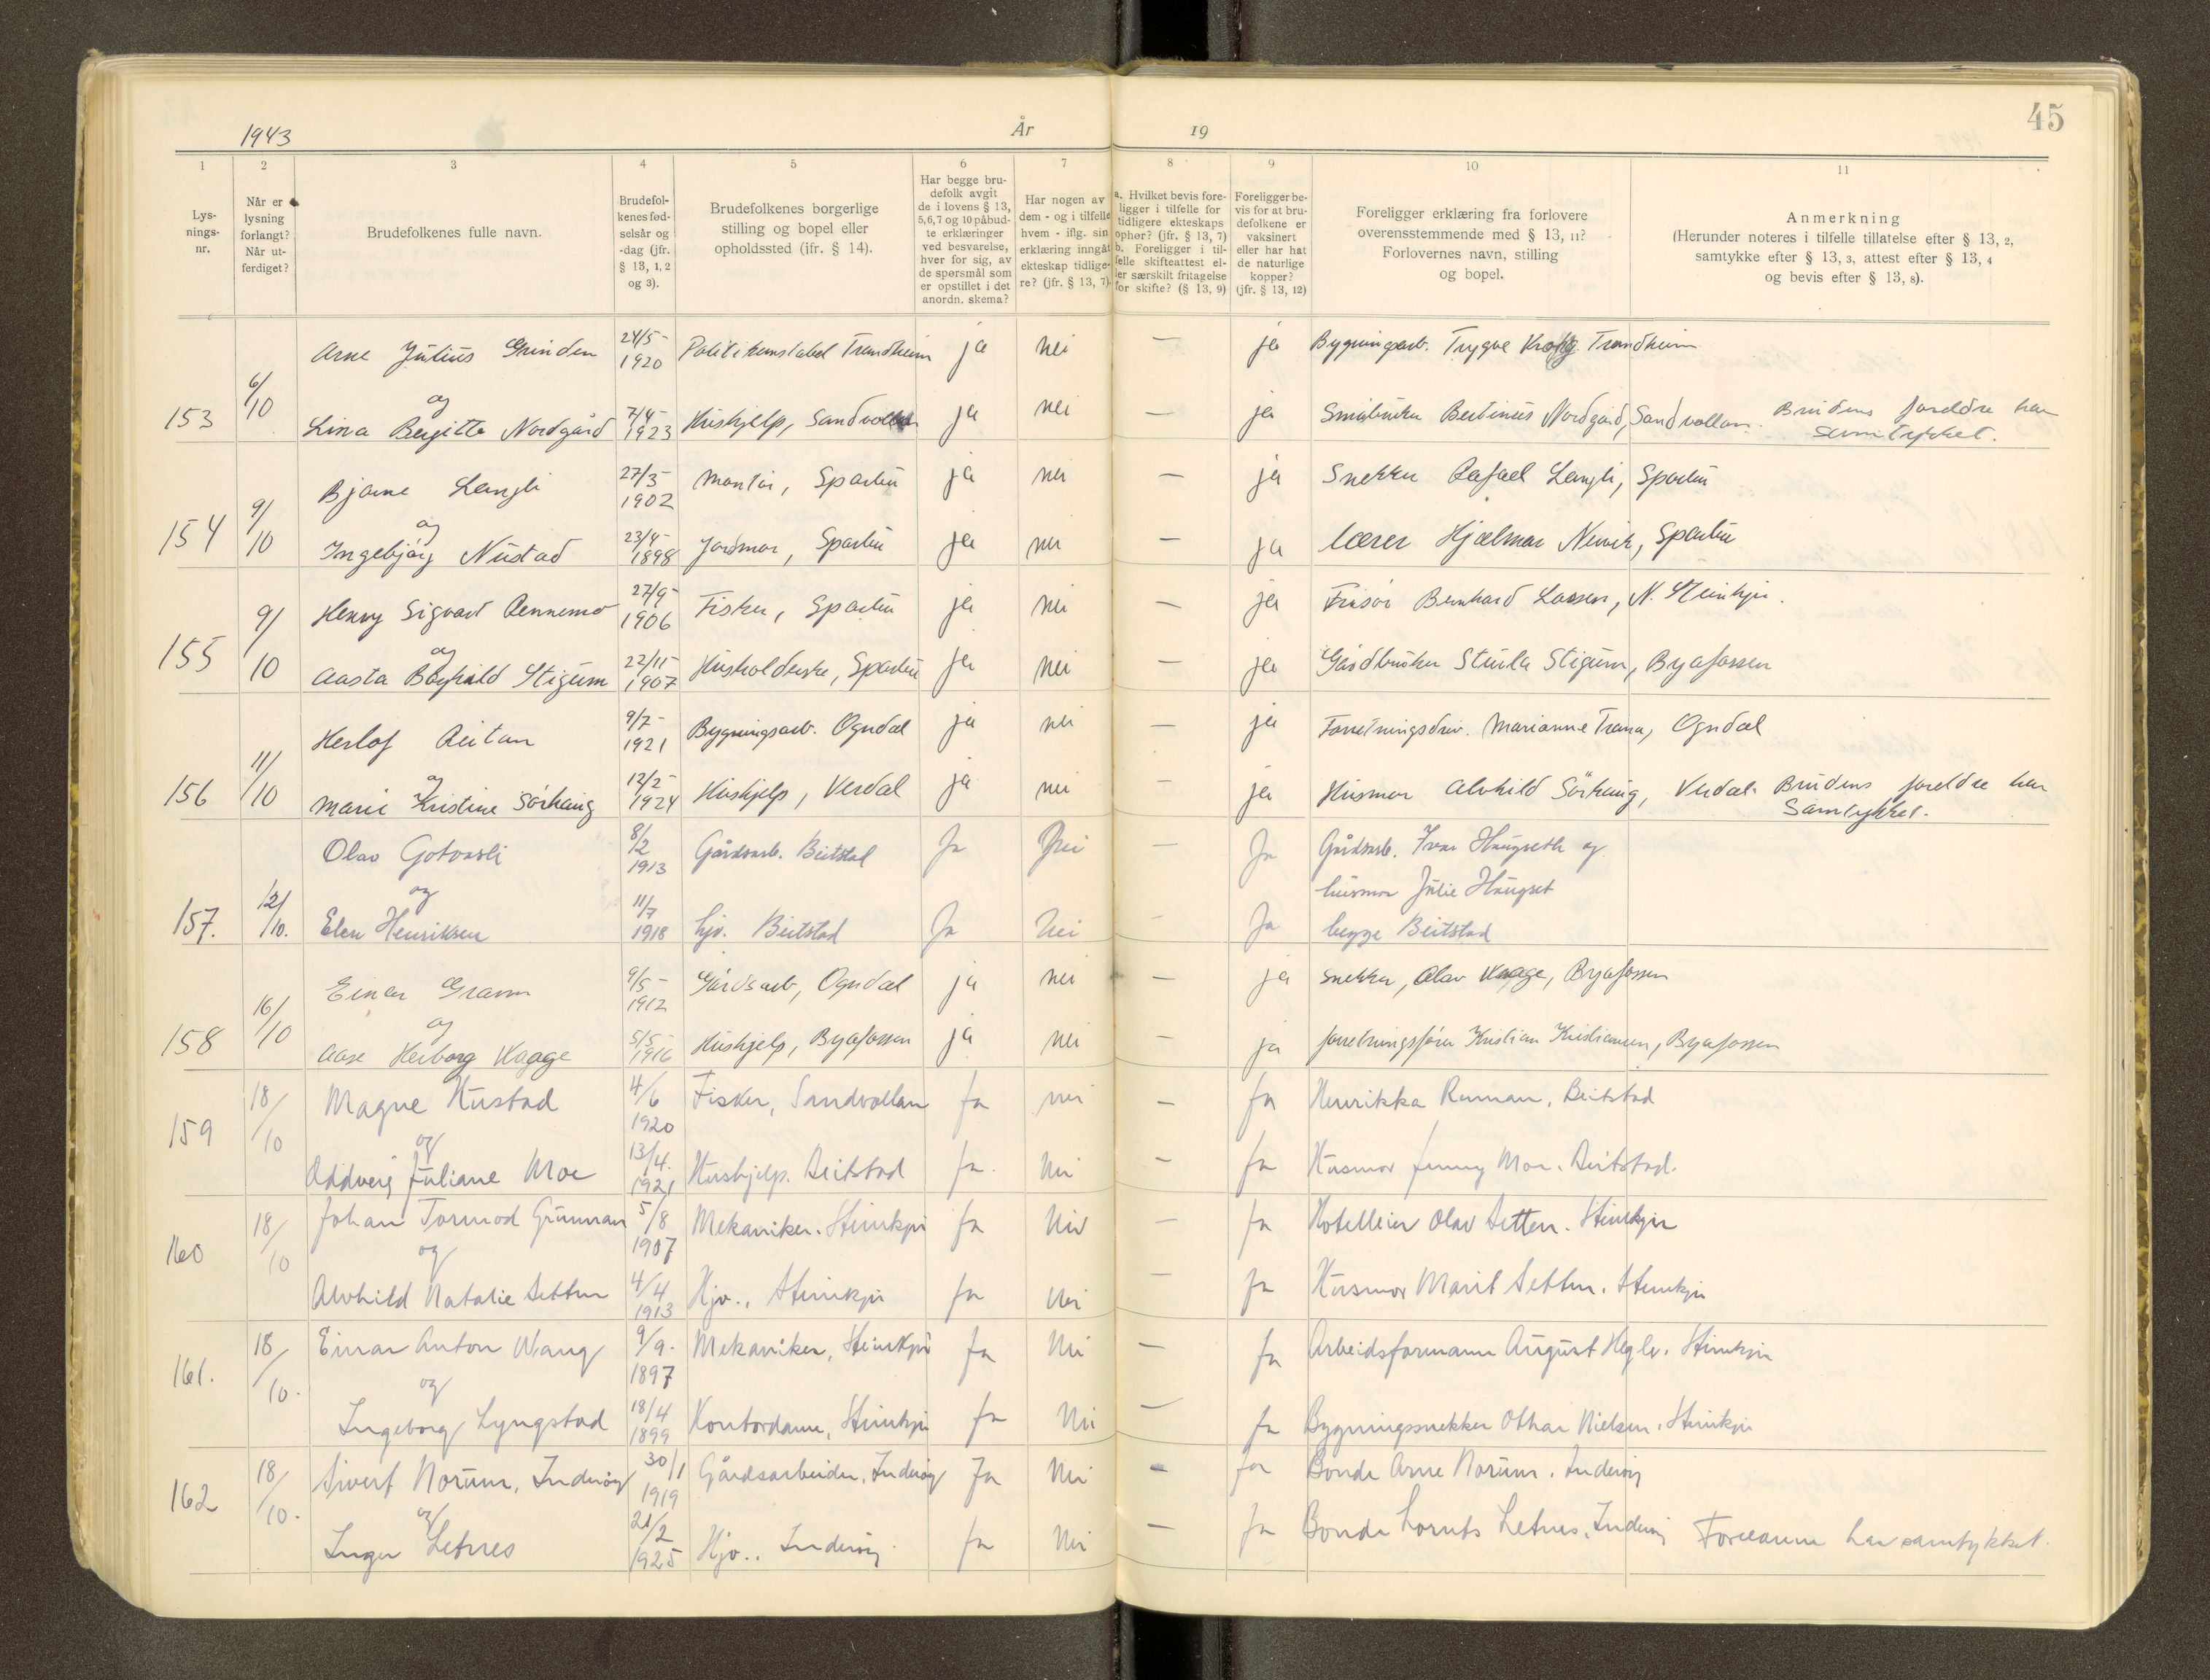 45
1943 År 19
1 2 3 4 5 6 7 8 9 10 11
Lys-
nings-
nr.
Når er
lysning
forlangt?
Når ut-
ferdiget?
Brudefolkenes fulle navn.
Brudefol-
kenes fød-
selsår og
-dag (jfr.
§ 13, 1, 2
og 3).
Brudefolkenes borgerlige
stilling og bopel eller
opholdssted (ifr. § 14).
Har begge bru-
defolk avgit
de i lovens § 13,
5,6,7 og 10 påbud-
te erklæringer
ved besvarelse,
hver for sig, av
de spørsmål som
er opstillet i det
anordn. skema?
Har nogen av
dem - og i tilfelle
hvem - iflg. sin
erklæring inngåt
ekteskap tidlige-
re? (jfr. § 13, 7)
a. Hvilket bevis fore-
ligger i tilfelle for
tidligere ekteskaps
opher? (jfr. § 13, 7)
b. Foreligger i til-
felle skifteattest el-
ler særskilt fritagelse
for skifte? (§ 13, 9)
Foreligger be-
vis for at bru-
defolkene er
vaksinert
eller har hat
de naturlige
kopper?
(jfr. § 13, 12)
Foreligger erklæring fra forlovere
overensstemmende med § 13, 11?
Forlovernes navn, stilling
og bopel.
Anmerkning
(Herunder noteres i tilfelle tillatelse efter § 13, 2,
samtykke efter § 13, 3, attest efter § 13, 4
og bevis efter § 13, 8).
Arne Julius Grinden 24/5- 1920 Politikonstabel Trondheim ja nei — ja Bygningsarb. Trygve Krohg Trondheim
153 6/10 og
Lina Bergitte Nordgård 7/4- 1923 Hushjelp, Sandvollan ja nei — ja Småbruker Bertinus Nordgård, Sandvollan. Brudens foreldre har
samtykket.
Bjarne Langli 27/3- 1902 Montør, Sparbu ja nei — ja Snekker Rafael Langli, Sparbu
154 9/10 og
Ingebjørg Nustad 23/4- 1898 Jordmor, Sparbu ja nei — ja lærer Hjalmar Nervik, Sparbu
Henry Sigvart Rennemo 27/9- 1906 Fisker, Sparbu ja nei — ja Frisør Bernhard Lassen, N. Steinkjer.
155 9/10 og
Aasta Borghild Stigum 22/11- 1907 Husholderske, Sparbu ja nei — ja Gårdbruker Sturla Stigum, Byafossen
Herlof Reitan 9/7- 1921 Bygningsarb. Ogndal ja nei — ja Forretningsdriv. Marianne Trana, Ogndal
156 11/10 og
Marie Kristine Sørhaug 12/2- 1924 Hushjelp, Verdal ja nei — ja Husmor Alvhild Sørhaug, Verdal. Brudens foreldre har
Samtykket.
Olav Gotvasli 8/2 1913 Gårdsarb. Beitstad Ja Nei — Ja Gårdsarb. Ivar Haugseth og
157. 12/10. og husmor Julie Haugset
Elen Henriksen 11/7 1918 hjv. Beitstad Ja Nei - Ja begge Beitstad
Einar Gramm 9/5- 1912 Gårdsarb, Ogndal ja nei — ja snekker, Olav Kaage, Byafossen
158 16/10 og
Aase Herborg Kaage 5/5- 1916 Hushjelp, Byafossen ja nei — ja forretningsfører Kristian Kristiansen, Byafossen
159 18/10 Magne Hustad 4/6 1920 Fisker, Sandvollan ja nei — ja Henrikka Raman, Beitstad
og
Oddveig Juliane Moe 13/4. 1921 Hushjelp. Beitstad ja. Nei — ja Husmor Jenny Moe. Beitstad.
160 18/10 Johan Tormod Grunnan 5/8 1907 Mekaniker. Steinkjer ja Nei — ja Hotelleier Olav Setten. Steinkjer
og
Alvhild Natalie Setten 4/4 1913 Hjv., Steinkjer ja nei — ja Husmor Marit Setten. Steinkjer
161. 18/10. Einar Anton Wang 9/9. 1897 Mekaniker, Steinkjer ja Nei — ja Arbeidsformann August Hegle. Steinkjer
og
Ingeborg Lyngstad 18/4 1899 Kontordame, Steinkjer ja Nei — ja Bygningssnekker Othar Nielsen. Steinkjer
162 18/10. Sivert Norum, Inderøy 30/1 1919 Gårdsarbeider, Inderøy Ja Nei - ja Bonde Arne Norum. Inderøy
og
Inger Letnes 21/2 1925 Hjv.. Inderøy. ja Nei — ja Bonde Lornts Letnes. Inderøy Foreldrene har samtykket.